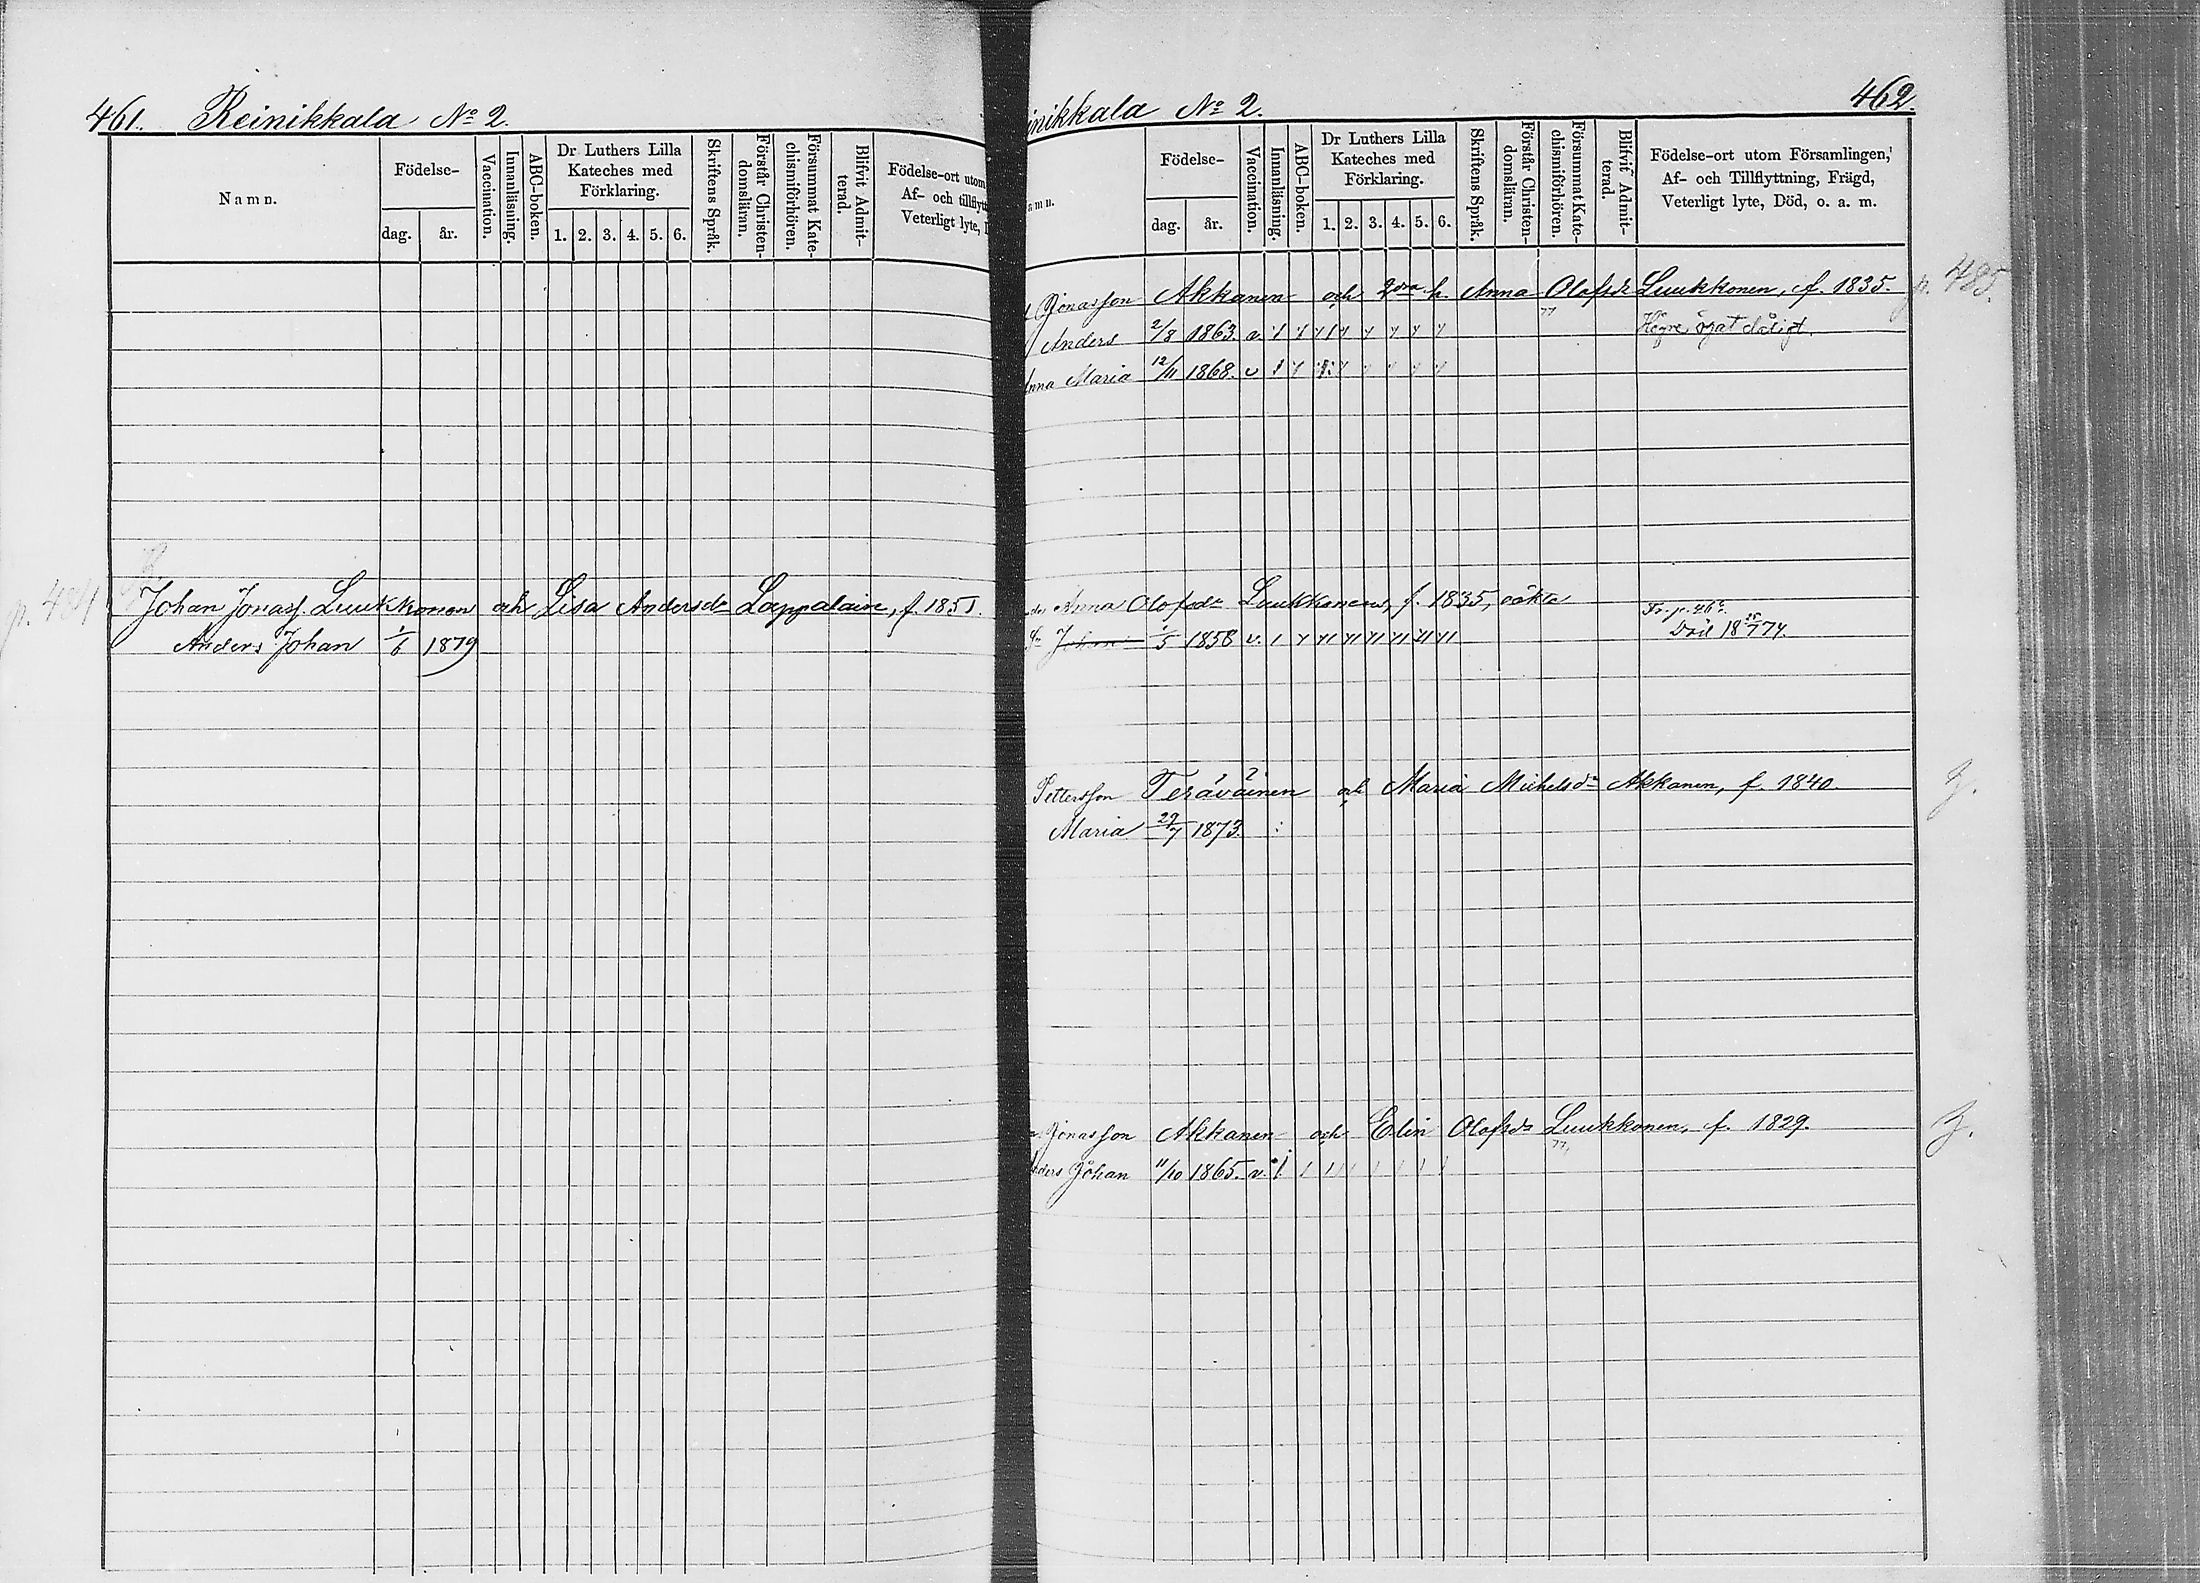 461. Reinikkala № 2.
Namn.
Födelse-
dag. år.
Vaccination.
Innanläsning.
ABC-boken.
Dr Luthers Lilla
Kateches med
Förklaring.
1. 2. 3. 4. 5. 6.
Skriftens Språk.
Förstår Christen-
domsläran.
Försummat Kate-
chismiförhören.
Blifvit Admit-
terad.
Födelse-ort utom
Af- och tillflytt
Veterligt lyte,
p. 484
Johan Jonass. Luukkonen och Lisa Andersdr Lappalain, f. 1851.
Anders Johan 1/6 1879
inikkala № 2. 462.
amn.
Födelse-
dag. år.
Vaccination.
Innanläsning.
ABC-boken.
Dr Luthers Lilla
Kateches med
Förklaring.
1. 2. 3. 4. 5. 6.
Skriftens Språk.
Förstår Christen-
domsläran.
Försummat Kate-
chismiförhören.
Blifvit Admit-
terad.
Födelse-ort utom Församlingen,
Af- och Tillflyttning, Frägd,
Veterligt lyte, Död, o. a. m.
Jonasson Akkanen och 2dra h. Anna Olofsdr Luukkonen, f. 1835. p. 485.
Anders 2/8 1863. v. Högre ögat dåligt.
nna Maria 12/11 1868. v
Anna Olofsdr Luukkonens, f. 1835, oäkta
Johan 1/5 1858 v. Död 18 7 74.
Pettersson Teräväinen och Maria Michelsdr Akkanen, f. 1840.
Maria 29/7 1873.
Jonasson Akkanen och Elin Olofsdr Luukkonen, f. 1829.
nders Johan 11/10 1865. v.